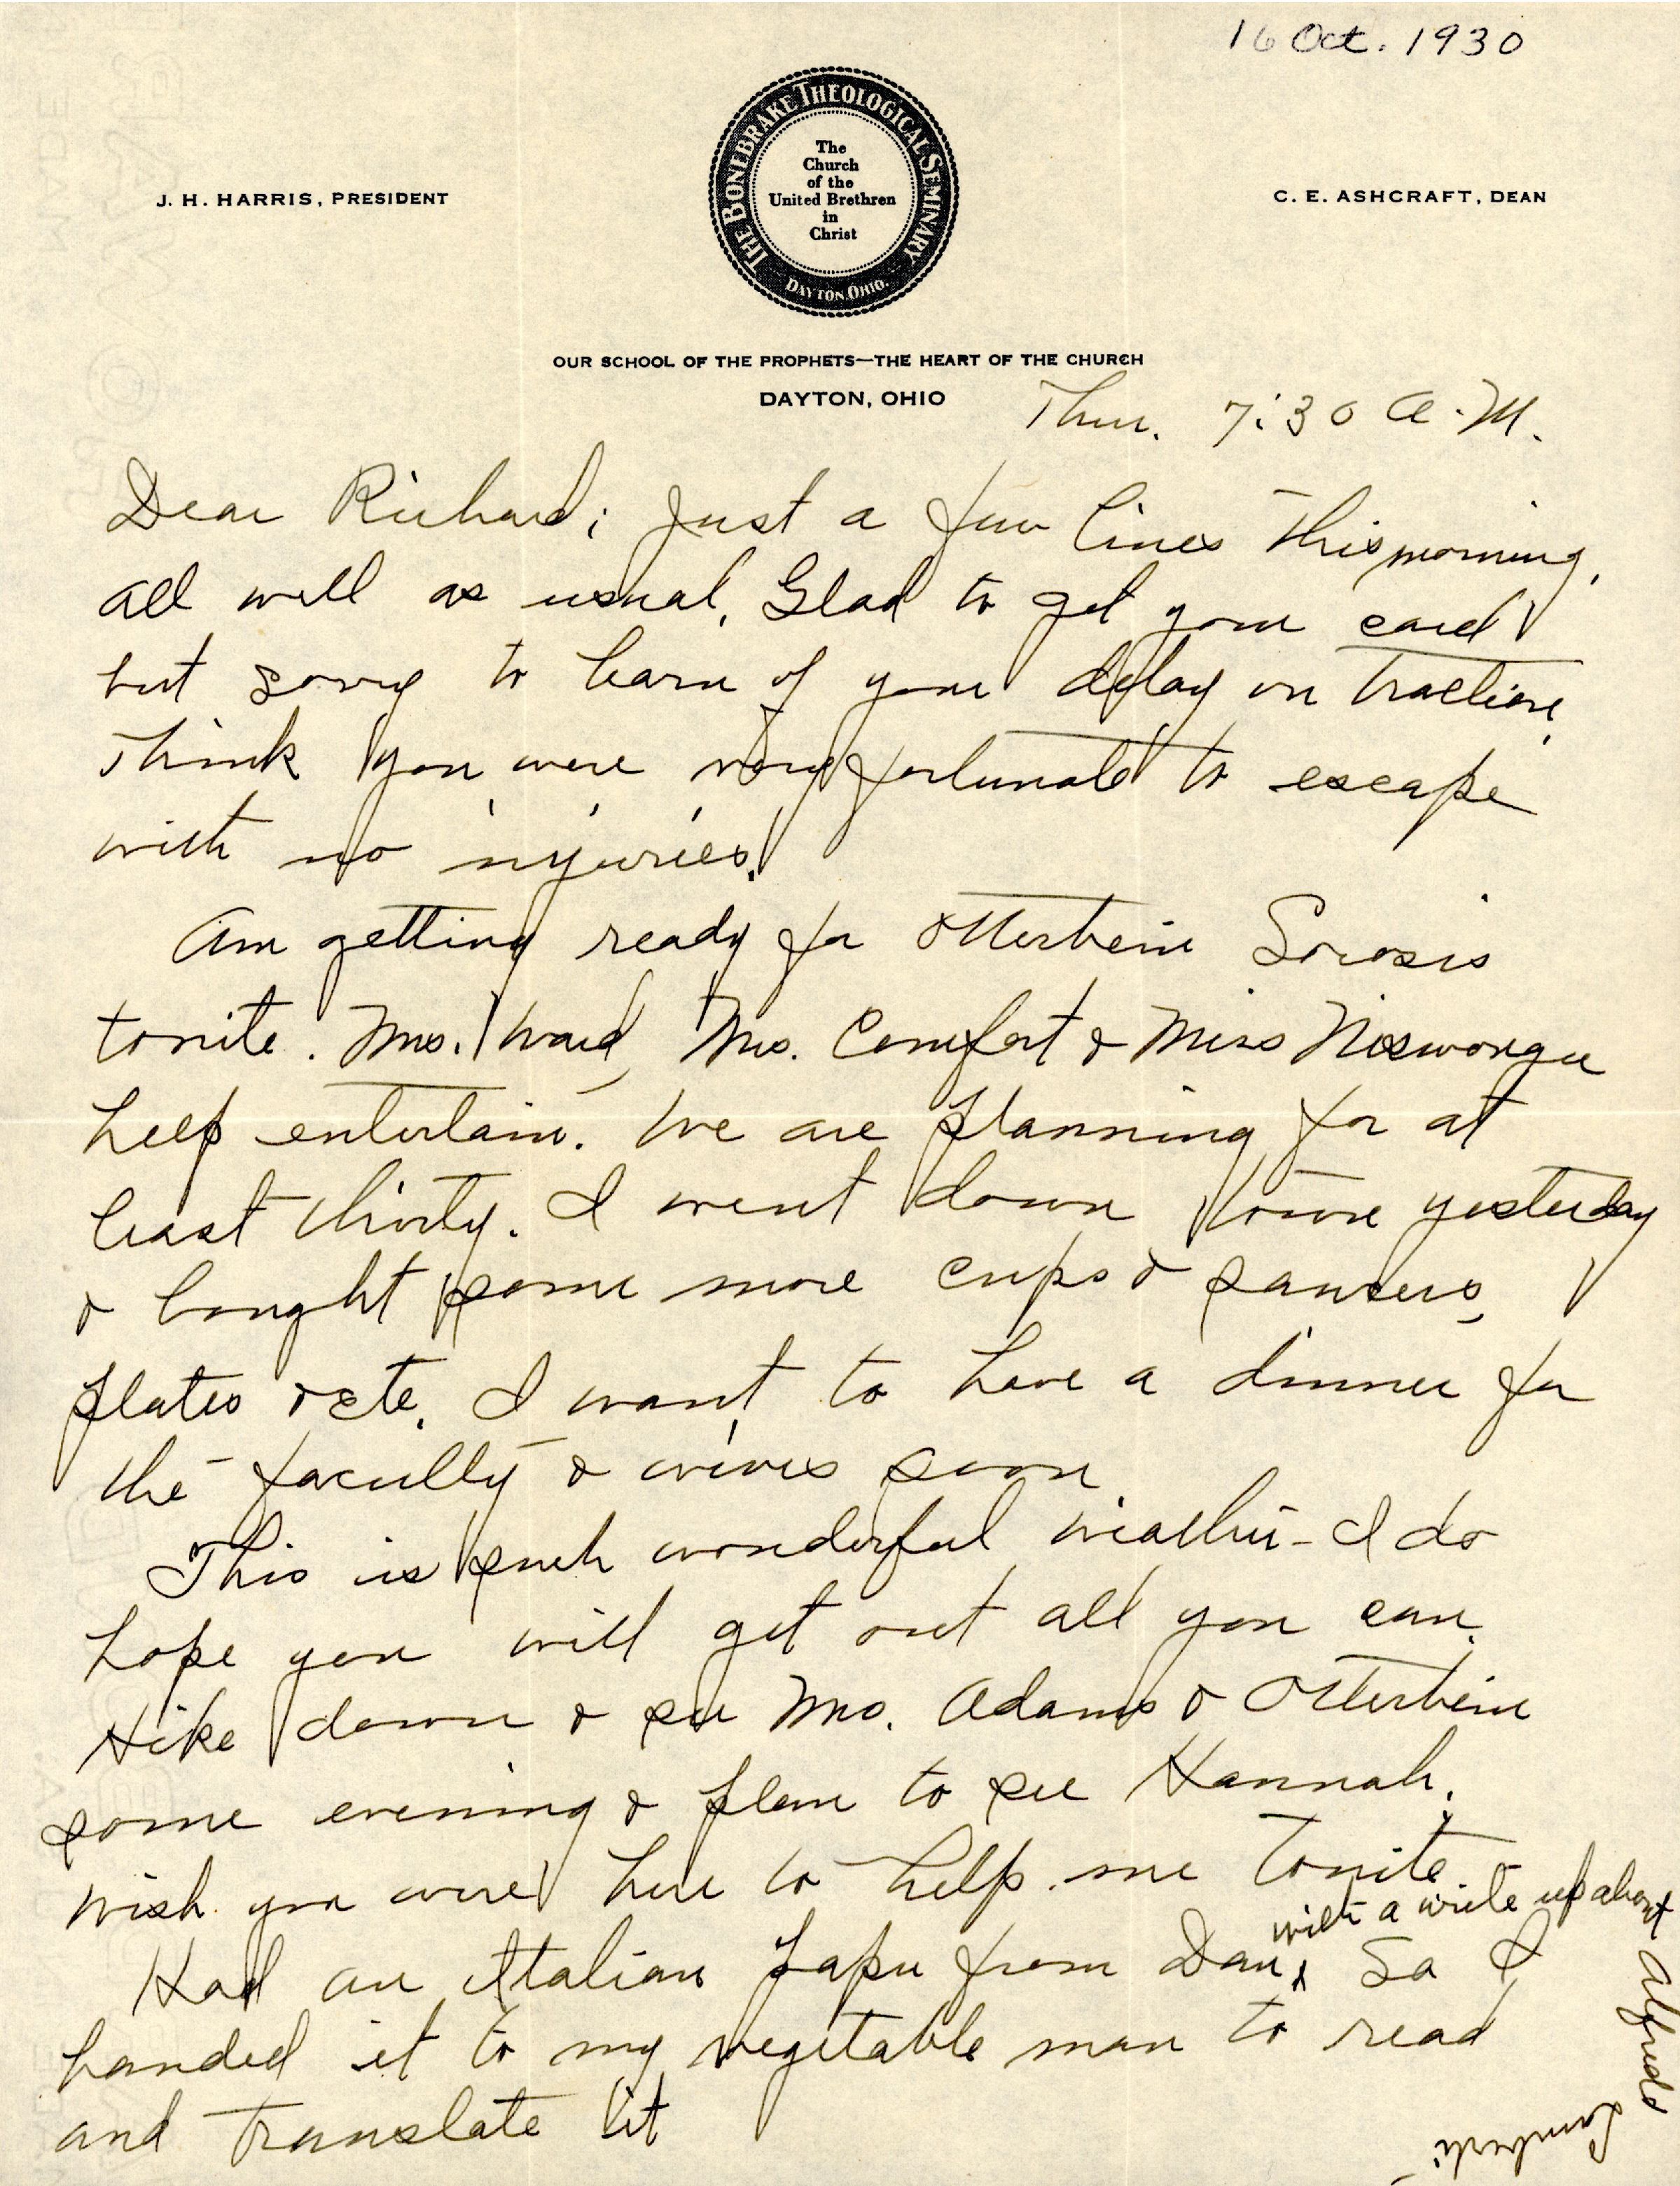 16 Oct. 1930
THE BONEBRAKE THEOLOGICAL SEMINARY
The
Church
of the
United Brethren
in
Christ
DAYTON, OHIO.
J. H. HARRIS, PRESIDENT
C. E. ASHCRAFT, DEAN
OUR SCHOOL OF THE PROPHETS—THE HEART OF THE CHURCH
DAYTON, OHIO
Thur. 7:30 A.M.
Dear Richard; Just a few lines this morning.
All well as usual. Glad to get your card
but sorry to learn of your delay on traction.
Think you were very fortunate to escape
with no injuries.
Am getting ready for Otterbein Sorosis
tonite. Mrs. Ward, Mrs. Comfort & Miss Niswonger
help entertain. We are planning for at
least thirty. I went down town yesterday
& bought some more cups & saucers,
plates & etc. I want to have a dinner for
the faculty & wives soon
This is such wonderful weather - I do
hope you will get out all you can.
Hike down & see Mrs. Adams & Otterbein
some evening & plan to see Hannah.
Wish you were here to help me tonite.
Had an Italian paper from Dan, with a write up about Alfredo So I
handed it to my vegetable man to read
and translate it